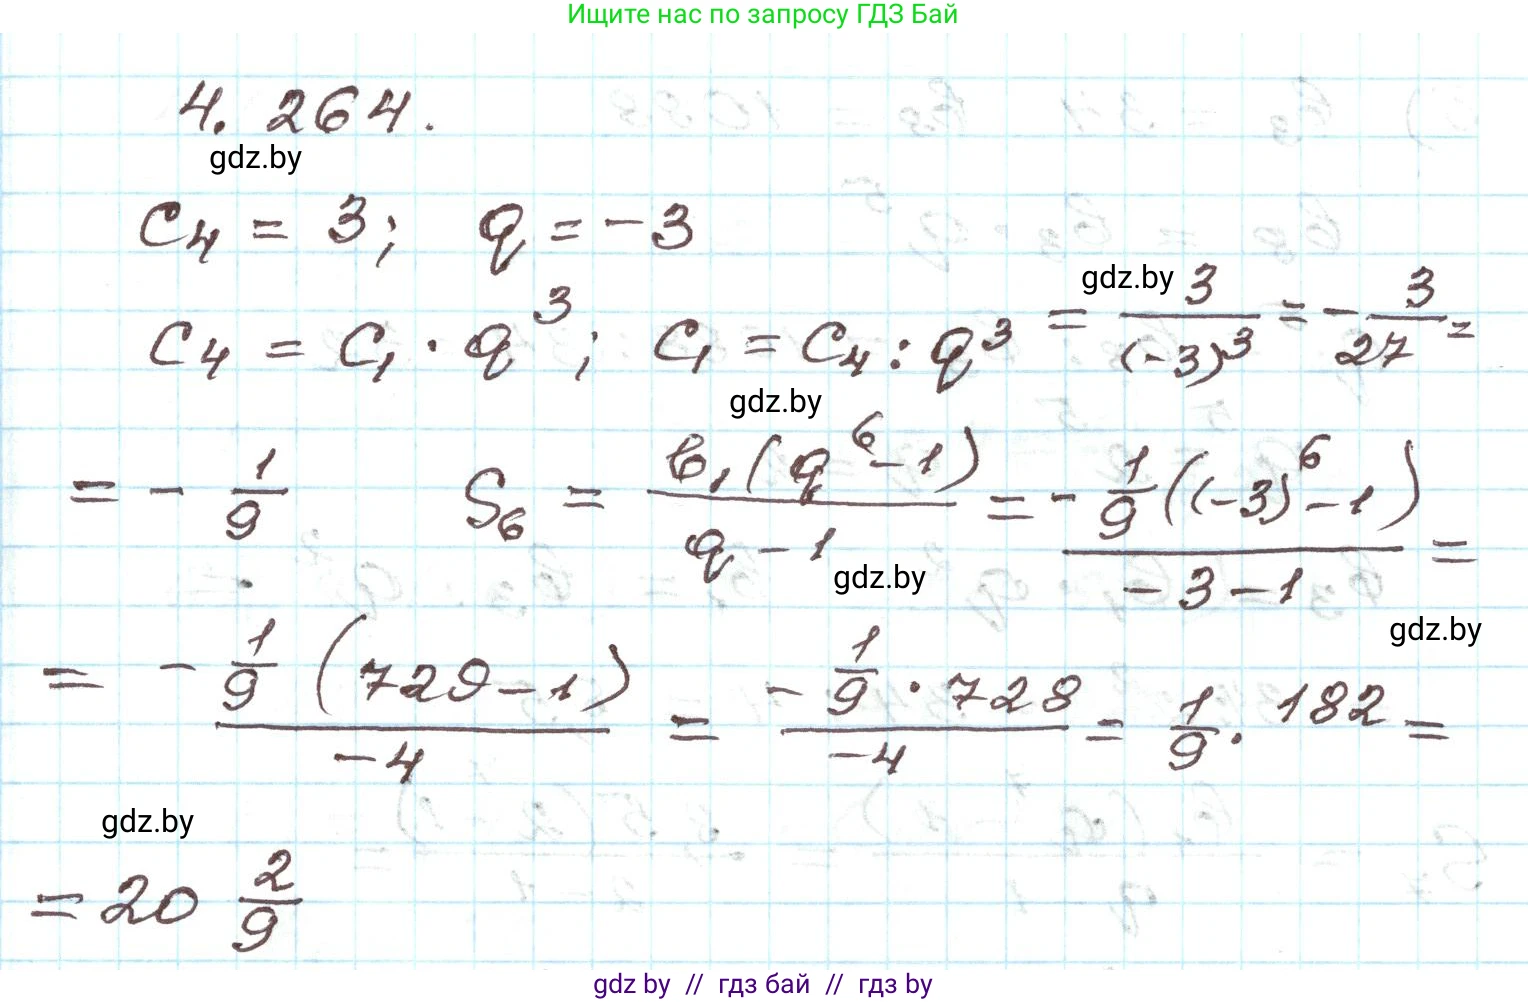 Ищите нас по запросу ГДЗ Бай
4.264.
gdz.by
c₄ = 3; q = -3
gdz.by
c₄ = c₁ · q³; c₁ = c₄ : q³ = 3/(-3)³ = - 3/27 =
gdz.by
= - 1/9 S₆ = b₁(q⁶-1)/(q-1) = - 1/9((-3)⁶-1)/(-3-1) =
gdz.by
gdz.by
= - 1/9 (729-1)/(-4) = - 1/9 · 728/(-4) = 1/9 · 182 =
gdz.by
= 20 2/9
gdz by // гдз бай // гдз by